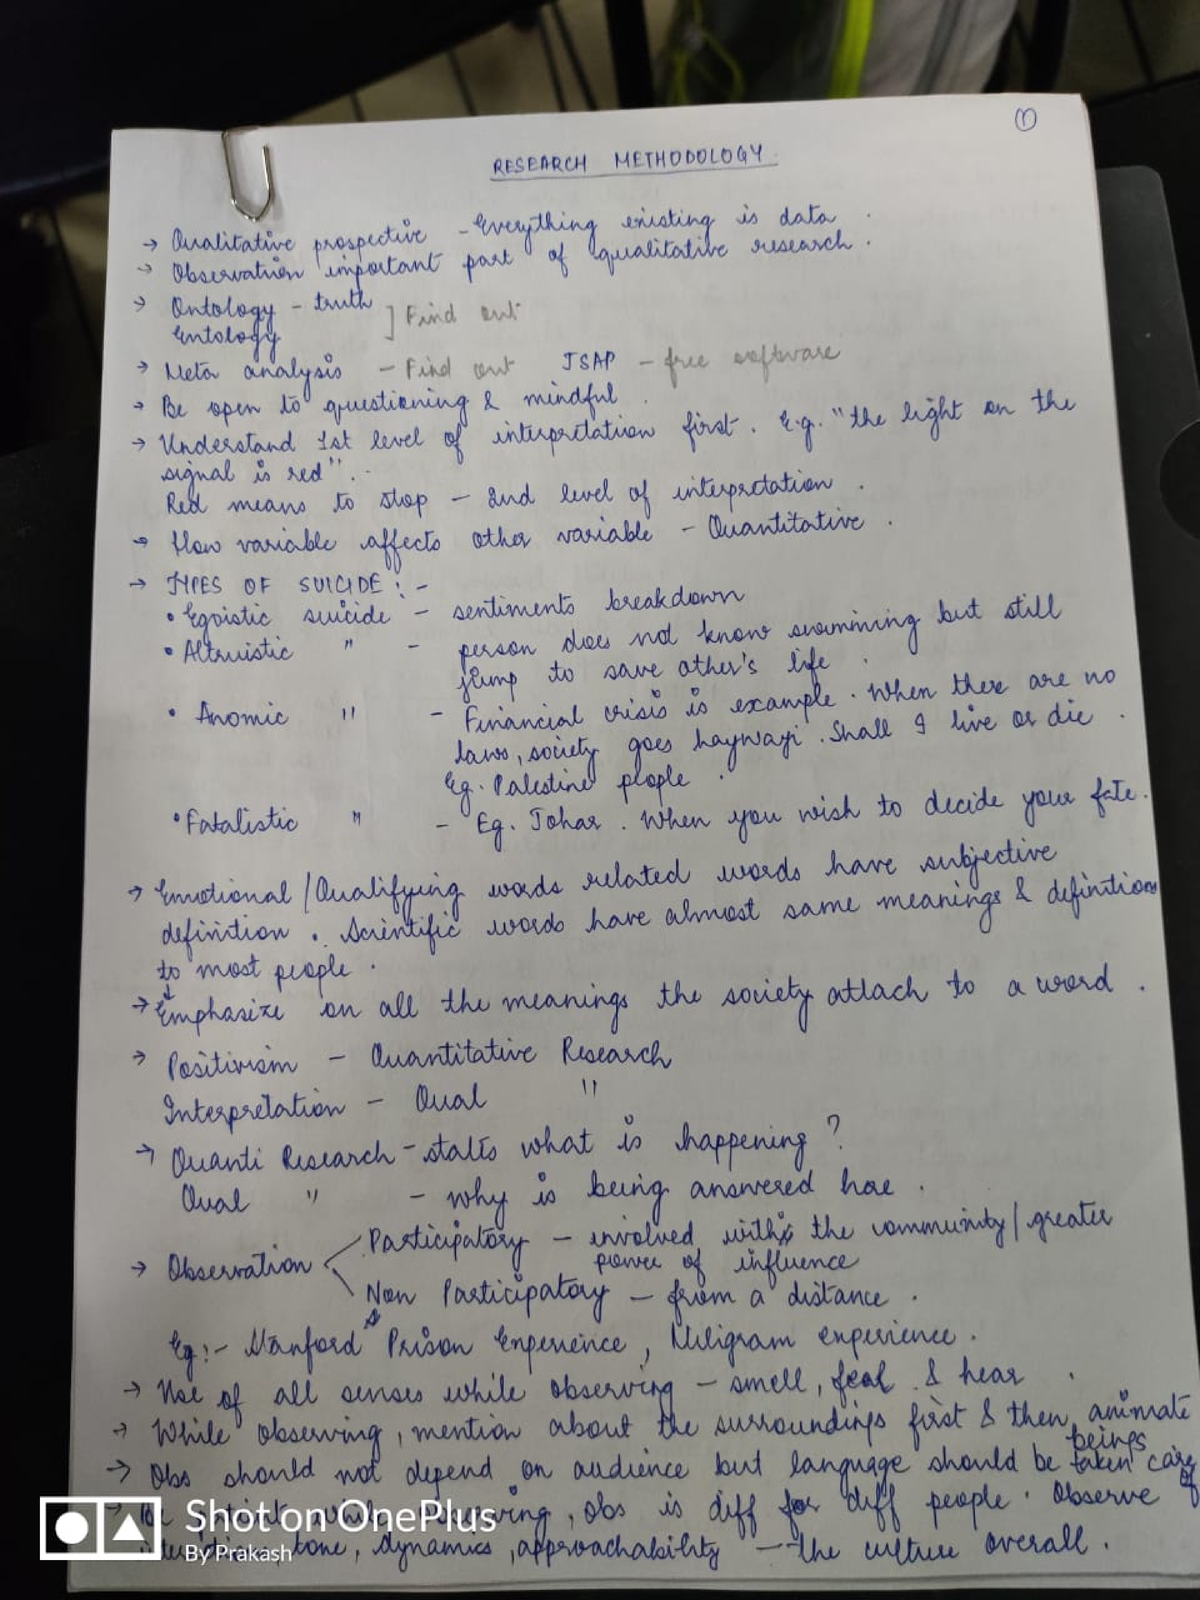 ①
RESEARCH METHODOLOGY
→ Qualitative prospective - Everything existing is data.
→ Observation important part of qualitative research.
→ Ontology - truth ] Find out
Entology
→ Meta analysis - Find out JSAP - free software
→ Be open to questioning & mindful.
→ Understand 1st level of interpretation first. E.g. "the light on the
signal is red".
Red means to stop - 2nd level of interpretation.
→ How variable affects other variable - Quantitative.
→ TYPES OF SUICIDE :-
• Egoistic suicide - sentiments breakdown
• Altruistic " - person does not know swimming but still
jump to save other's life.
• Anomic " - Financial crisis is example. When there are no
laws, society goes haywayi. Shall I live or die.
Eg. Palestine people.
• Fatalistic " - Eg. Johar. When you wish to decide your fate.
→ Emotional / Qualifying words related words have subjective
definition. Scientific words have almost same meanings & definitions
to most people.
→ Emphasize on all the meanings the society attach to a word.
→ Positivism - Quantitative Research
Interpretation - Qual "
→ Quanti Research - states what is happening?
Qual " - why is being answered here.
→ Observation < Participatory - involved with the community / greater
power of influence
Non Participatory - from a distance.
Eg:- Stanford Prison Experience, Miligram experience.
→ Use of all senses while observing - smell, feel & hear.
→ While observing, mention about the surroundings first & then animate
beings
→ Obs should not depend on audience but language should be taken care
of
→ Be patient while observing, obs is diff for diff people. Observe
tone, dynamics, approachability - the culture overall.
Shot on OnePlus
By Prakash